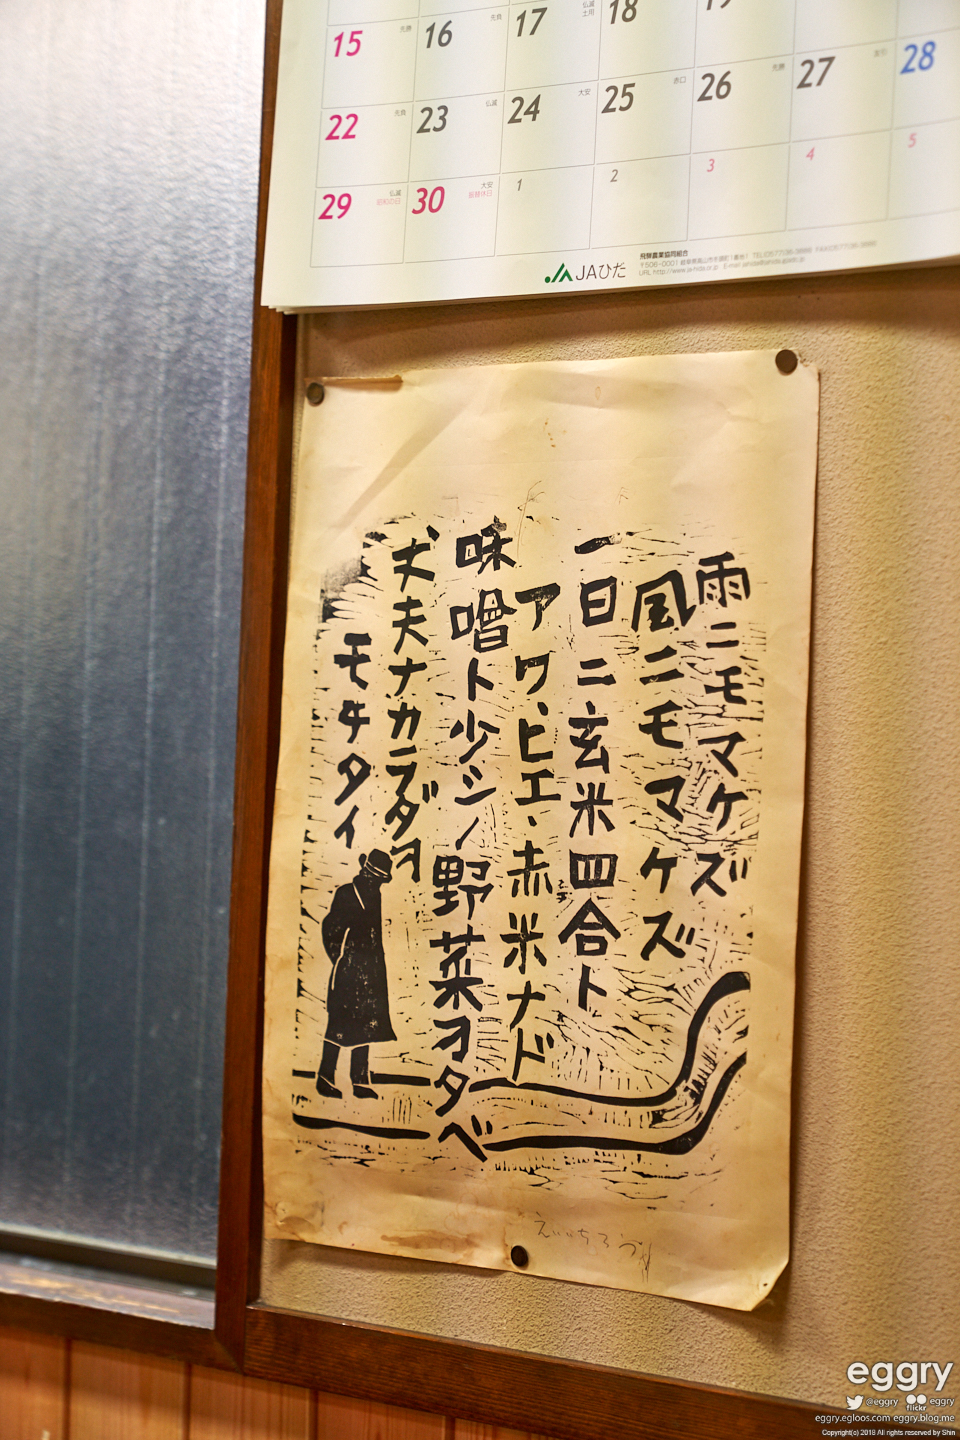 15 先勝 16 先負 17 仏滅 土用 18 19
22 先負 23 仏滅 24 大安 25 赤口 26 先勝 27 友引 28
29 仏滅 昭和の日 30 大安 振替休日 1 2 3 4 5
JAひだ
飛騨農業協同組合
雨ニモマケズ
風ニモマケズ
一日ニ玄米四合ト
アワ、ヒエ、赤米ナド
味噌ト少シノ野菜ヲタベ
丈夫ナカラダヲ
モチタイ
eggry
@eggry flickr eggry
eggry.egloos.com eggry.blog.me
Copyright(c) 2018 All rights reserved by Shin